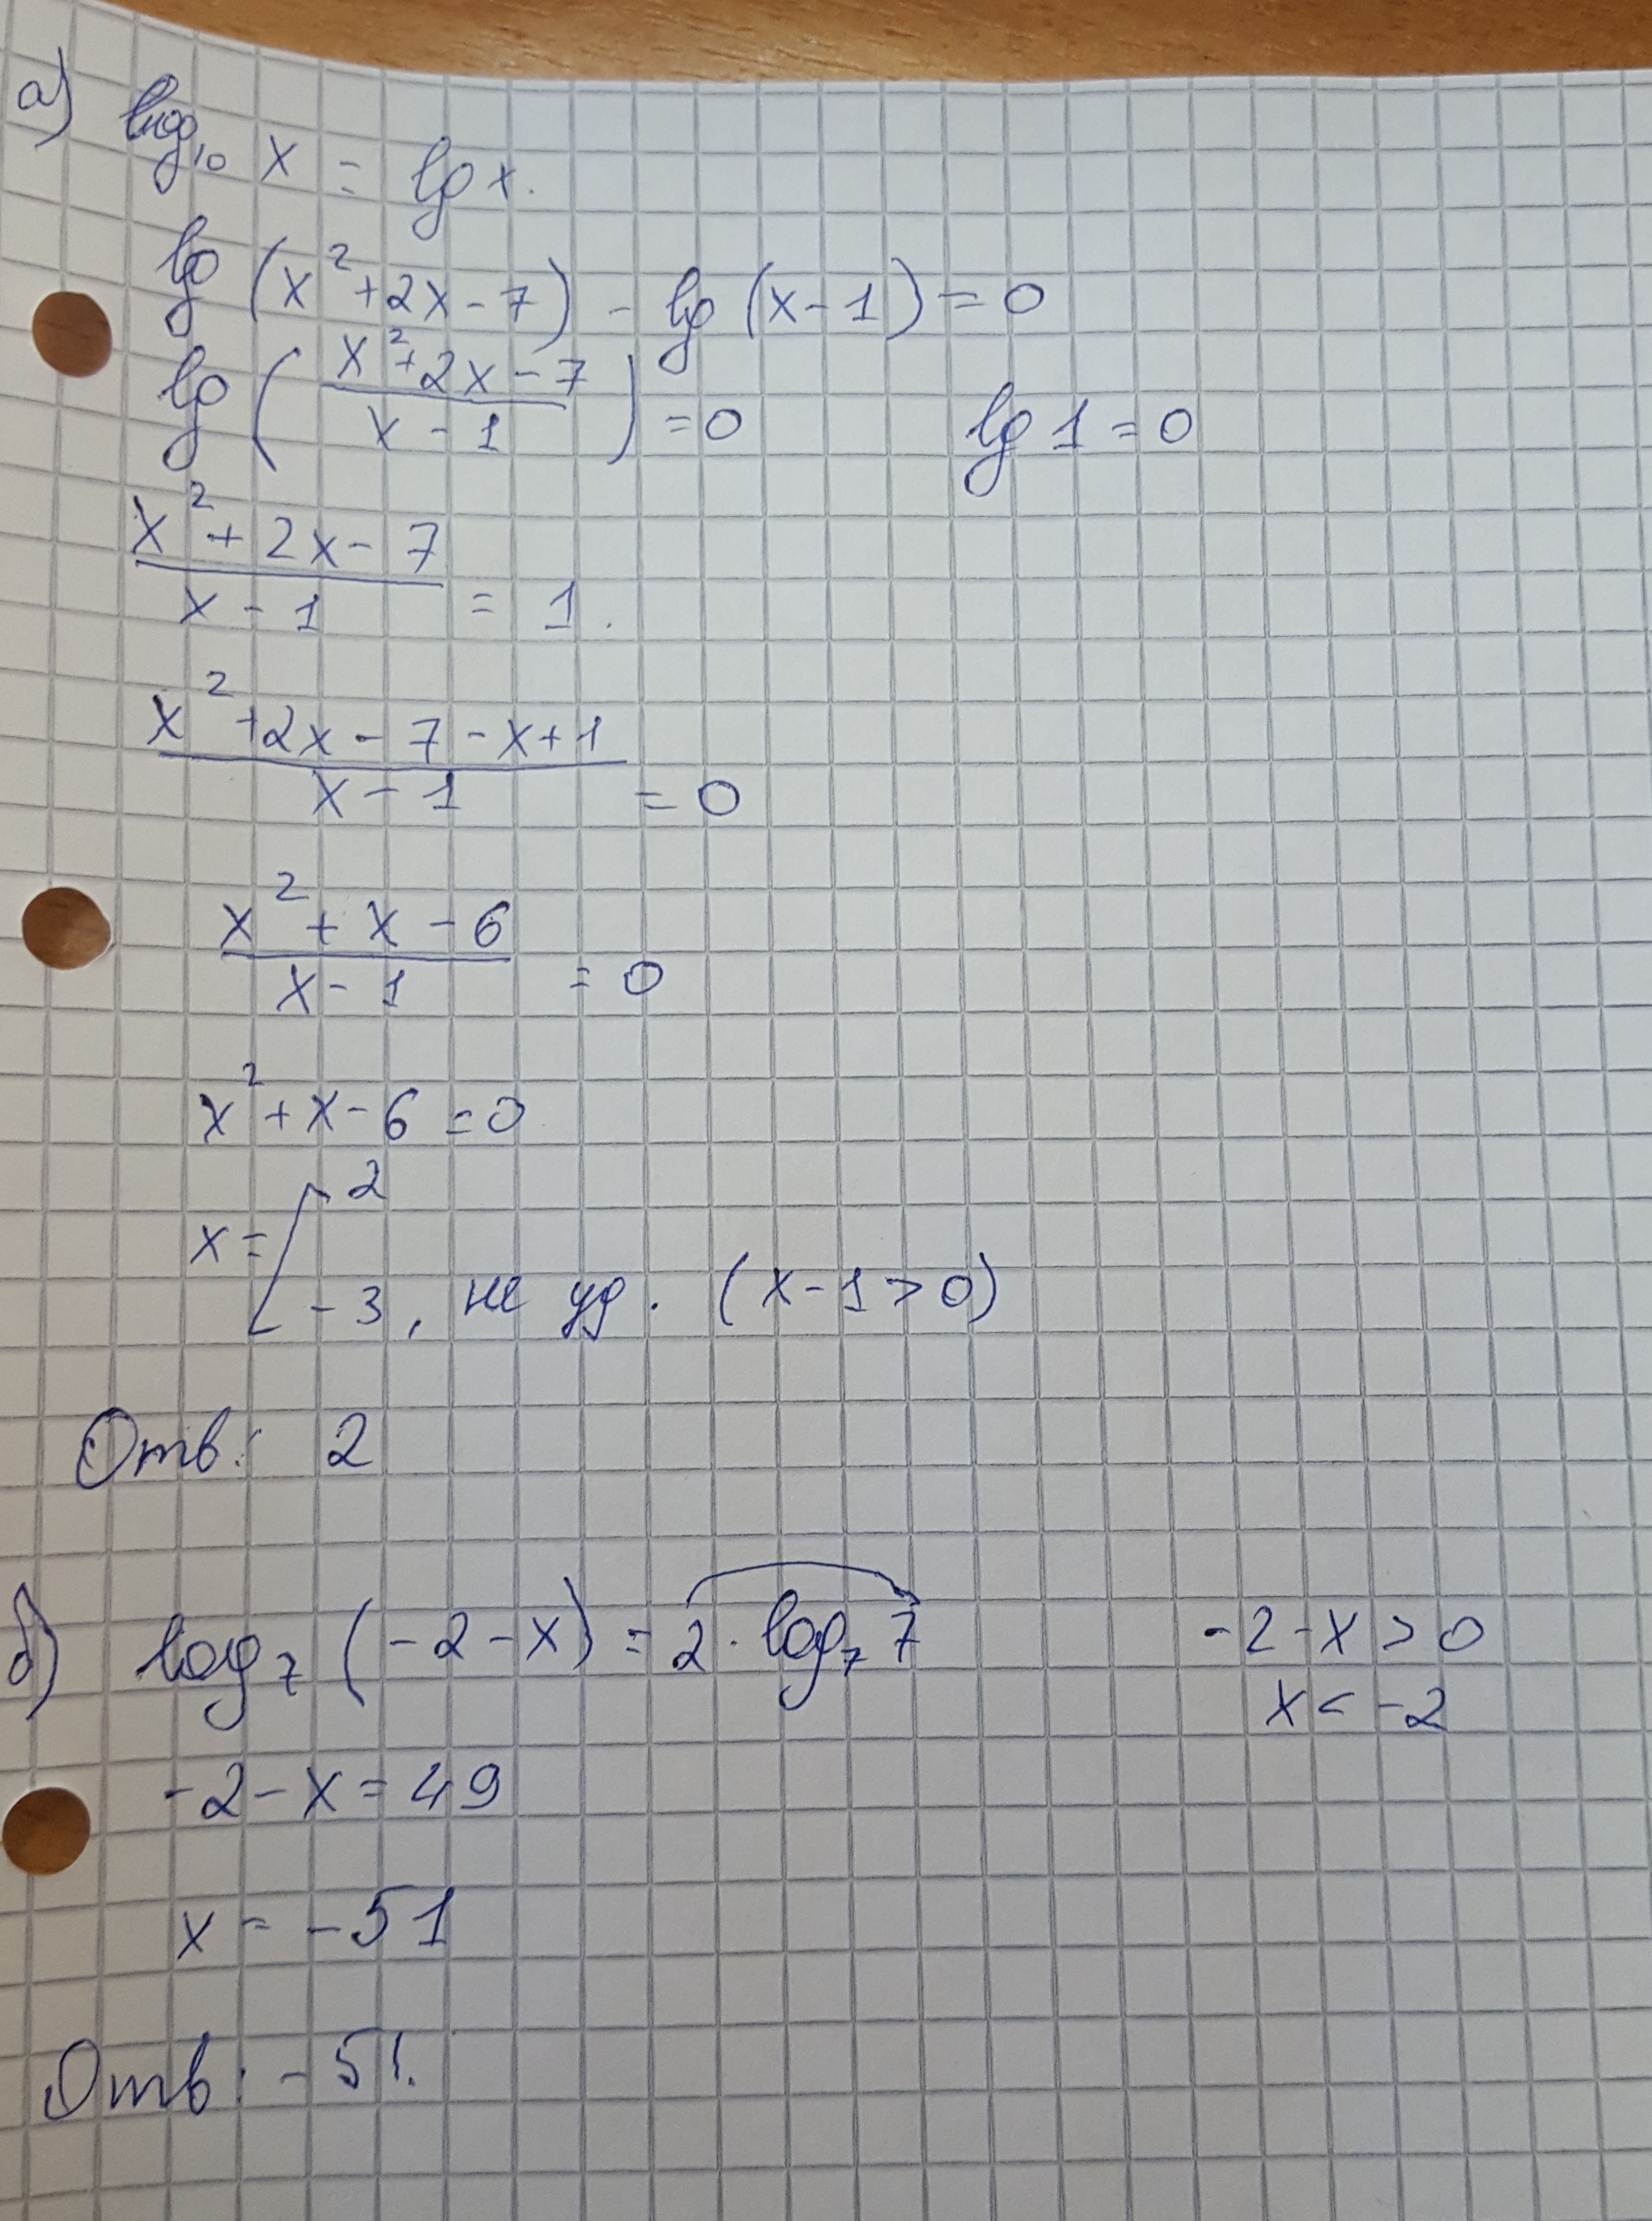 а) log₁₀ x = lg x.
lg (x² + 2x - 7) - lg (x - 1) = 0
lg ( (x² + 2x - 7) / (x - 1) ) = 0 lg 1 = 0
(x² + 2x - 7) / (x - 1) = 1.
(x² + 2x - 7 - x + 1) / (x - 1) = 0
(x² + x - 6) / (x - 1) = 0
x² + x - 6 = 0
x = [ 2
- 3, не уд. (x - 1 > 0)
Отв: 2
б) log₇ (-2 - x) = 2 · log₇ 7 -2 - x > 0
x < -2
-2 - x = 49
x = -51
Отв: -51.